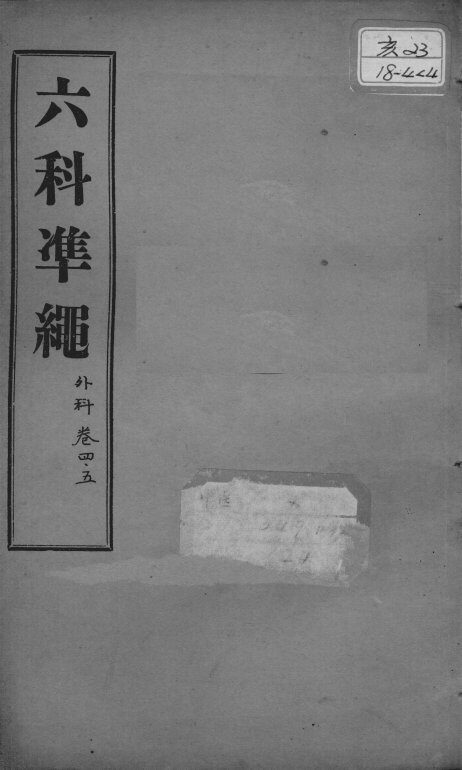 六科準繩
外科 卷四.五
亥23
18-444